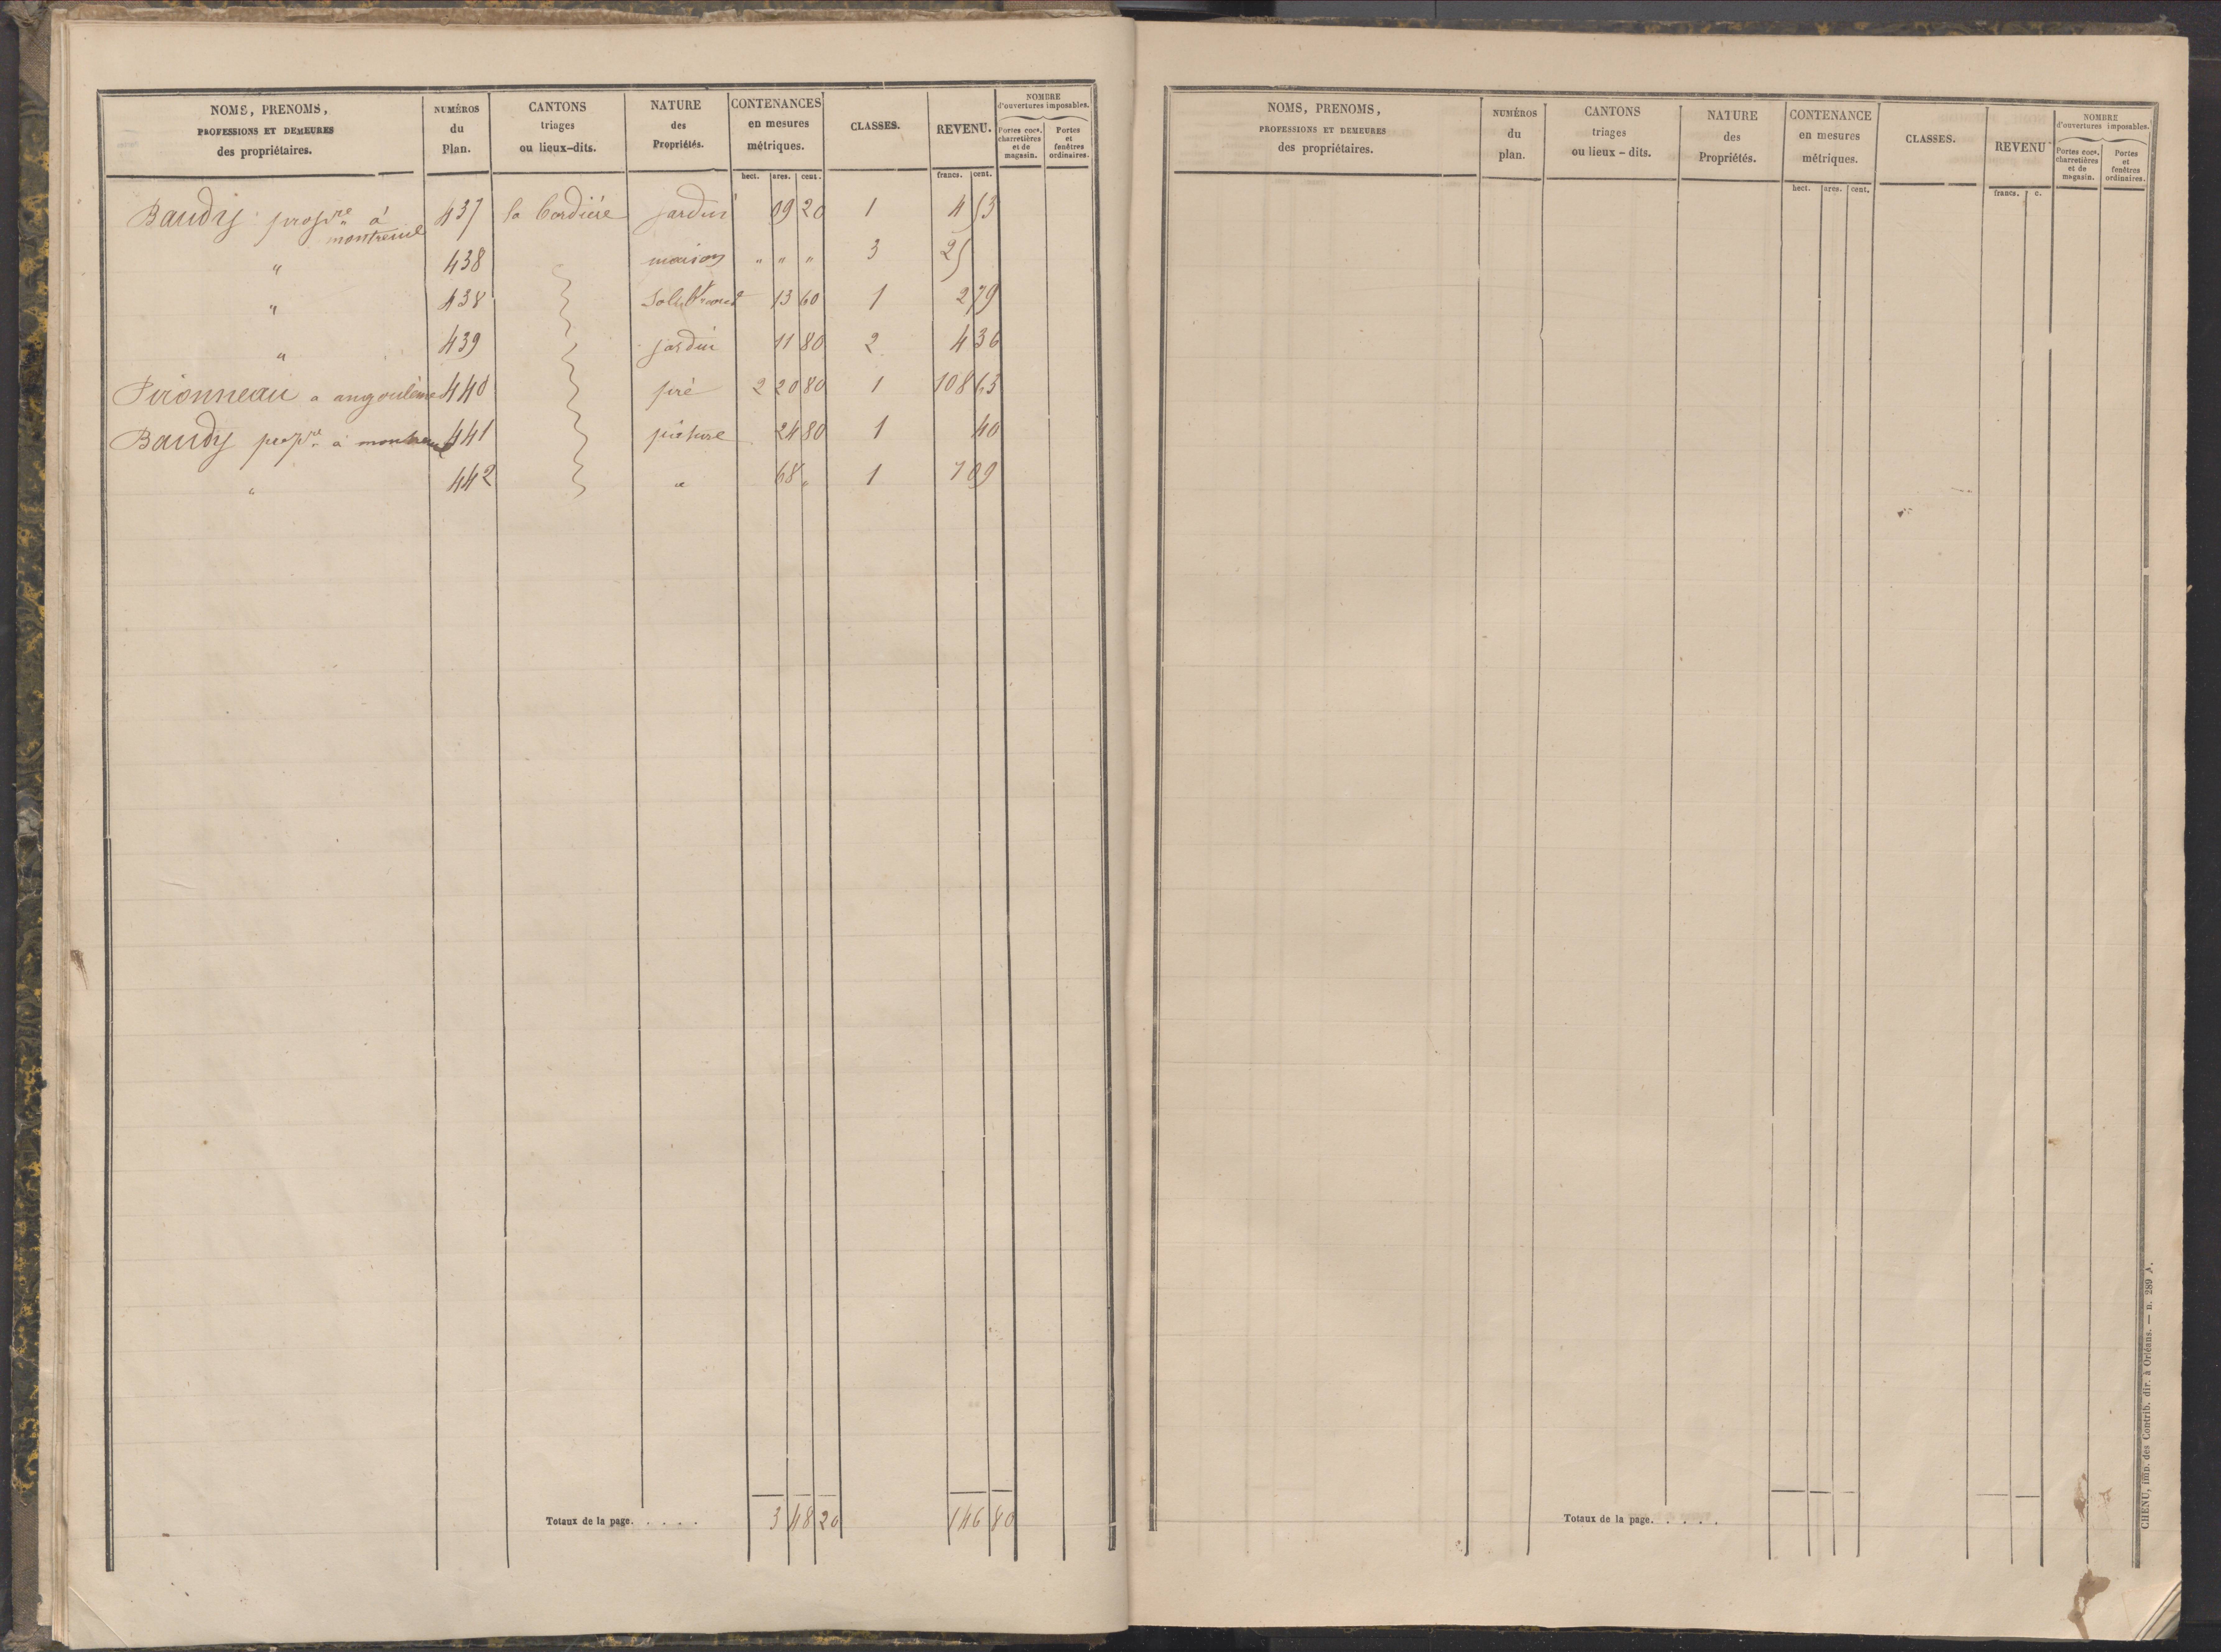 NOMS, PRENOMS,
PROFESSIONS ET DEMEURES
des propriétaires.
NUMÉROS
du
Plan.
CANTONS
triages
ou lieux-dits.
NATURE
des
Propriétés.
CONTENANCES
en mesures
métriques.
CLASSES.
REVENU.
NOMBRE
d'ouvertures imposables.
Portes coces.
charretières
et de
magasin.
Portes
et
fenêtres
ordinaires.
hect. ares. cent. francs. cent.
Baudy propre à montreuil 437 la bordière jardin 09 20 1 4 53
" 438 maison " " " 3 25
" 438 13 60 1 2 79
" 439 jardin 11 80 2 4 36
Pironneau a angoulème 440 pré 2 20 80 1 108 63
Baudy propre à 441 pâture 24 80 1 40
" 442 " 68 " 1 1 09
Totaux de la page. . . . . 3 48 20 146 80
NOMS, PRENOMS,
PROFESSIONS ET DEMEURES
des propriétaires.
NUMÉROS
du
plan.
CANTONS
triages
ou lieux-dits.
NATURE
des
Propriétés.
CONTENANCE
en mesures
métriques.
CLASSES.
REVENU
NOMBRE
d'ouvertures imposables.
Portes coces.
charretières
et de
magasin.
Portes
et
fenêtres
ordinaires.
hect. ares. cent. francs. c.
Totaux de la page. . . . .
CHENU, imp. des Contrib. dir. à Orléans. — n. 289 A.